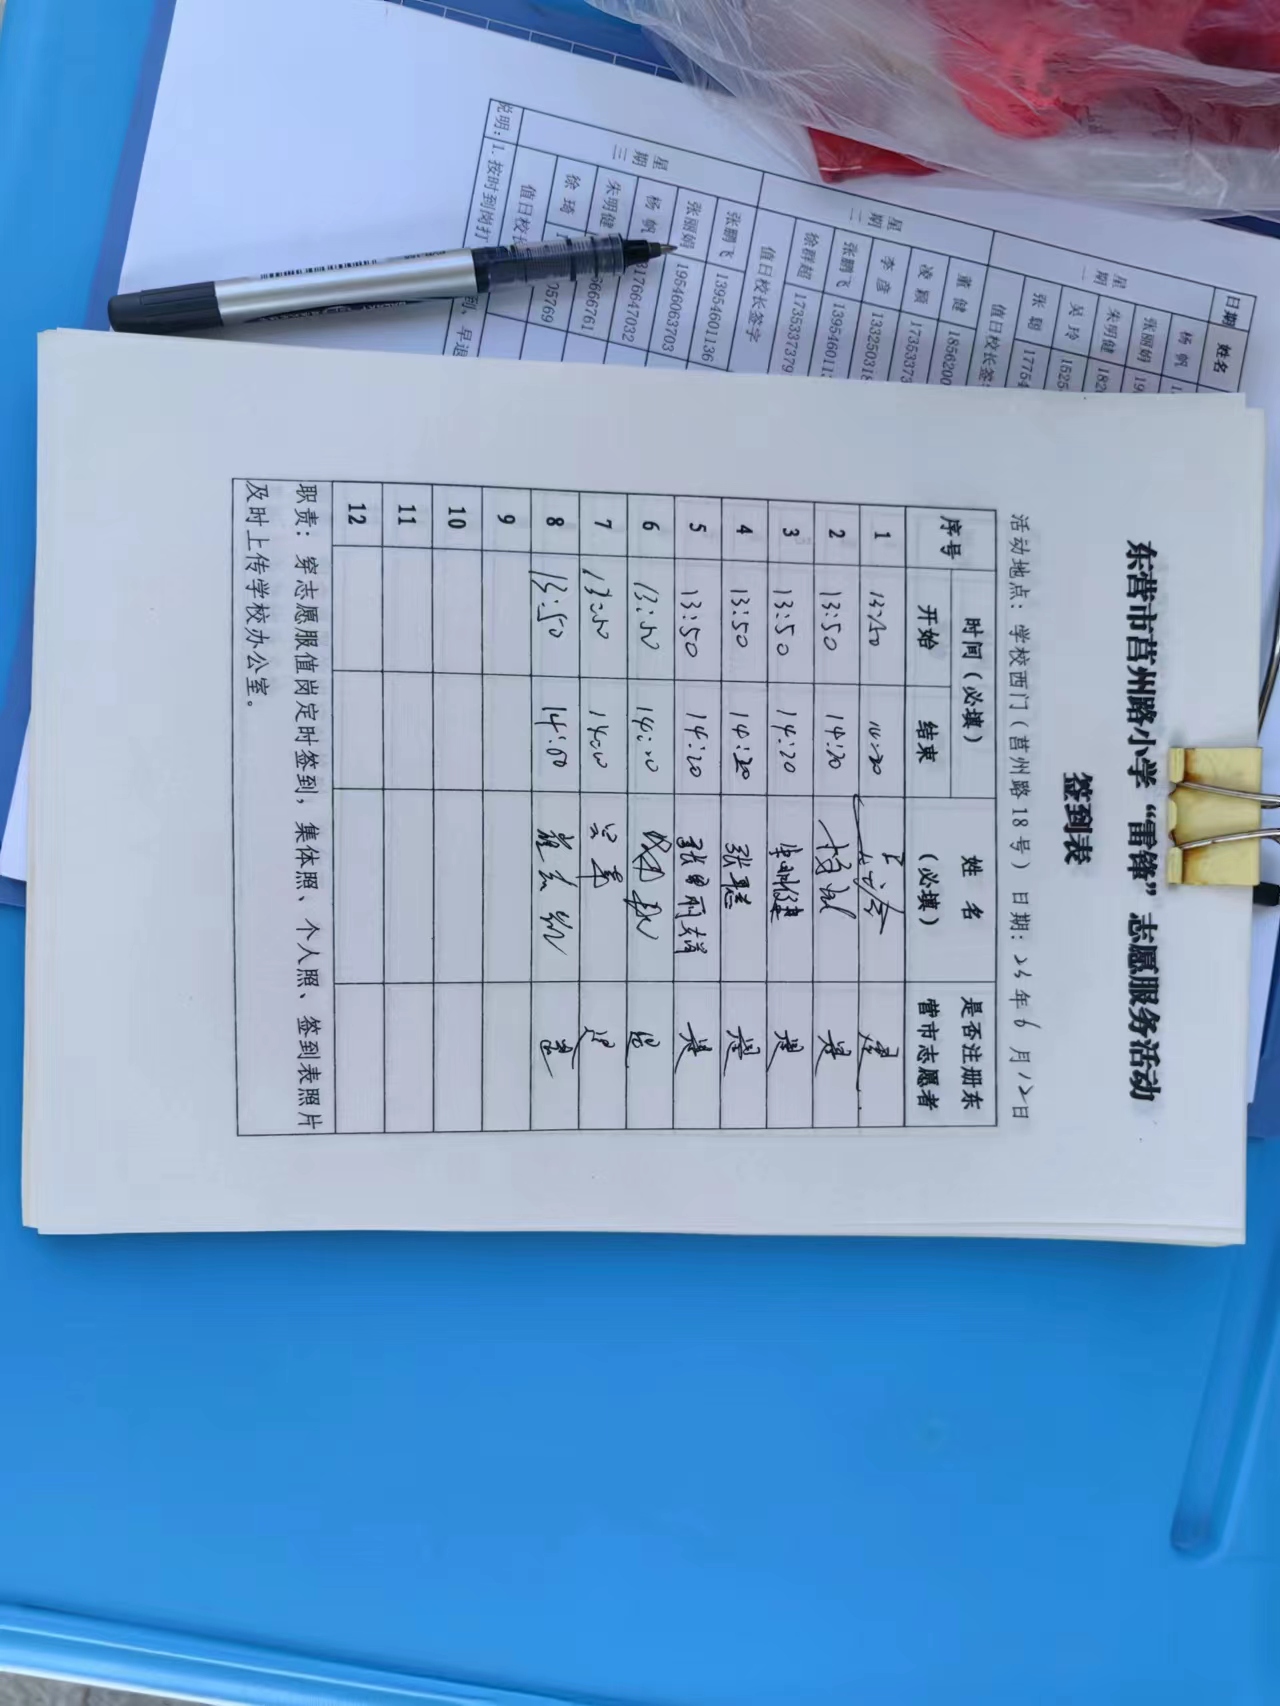 东营市莒州路小学“雷锋”志愿服务活动
签到表
活动地点：学校西门（莒州路18号） 日期：25年6月12日
序号 时间（必填） 姓名（必填） 是否注册东营市志愿者
开始 结束
1 13:50 14:20 是
2 13:50 14:20 是
3 13:50 14:20 朱明健 是
4 13:50 14:20 张聪 是
5 13:50 14:20 张丽娟 是
6 13:50 14:20 是
7 13:50 是
8 13:50 14:00 是
9
10
11
12
职责：穿志愿服值岗定时签到，集体照、个人照、签到表照片
及时上传学校办公室。
日期 姓名
星期一
杨帆
张丽娟
朱明健
吴玲
张聪
值日校长签
星期二
董健 1856200
凌颖 17353373
李彦 133250318
张鹏飞
徐群超 173533737
值日校长签字
星期三
张鹏飞 13954601136
张丽娟 19546063703
杨帆 176647032
朱明健 666761
徐琦 05769
值日校长
说明：1.按时到岗打
、早退